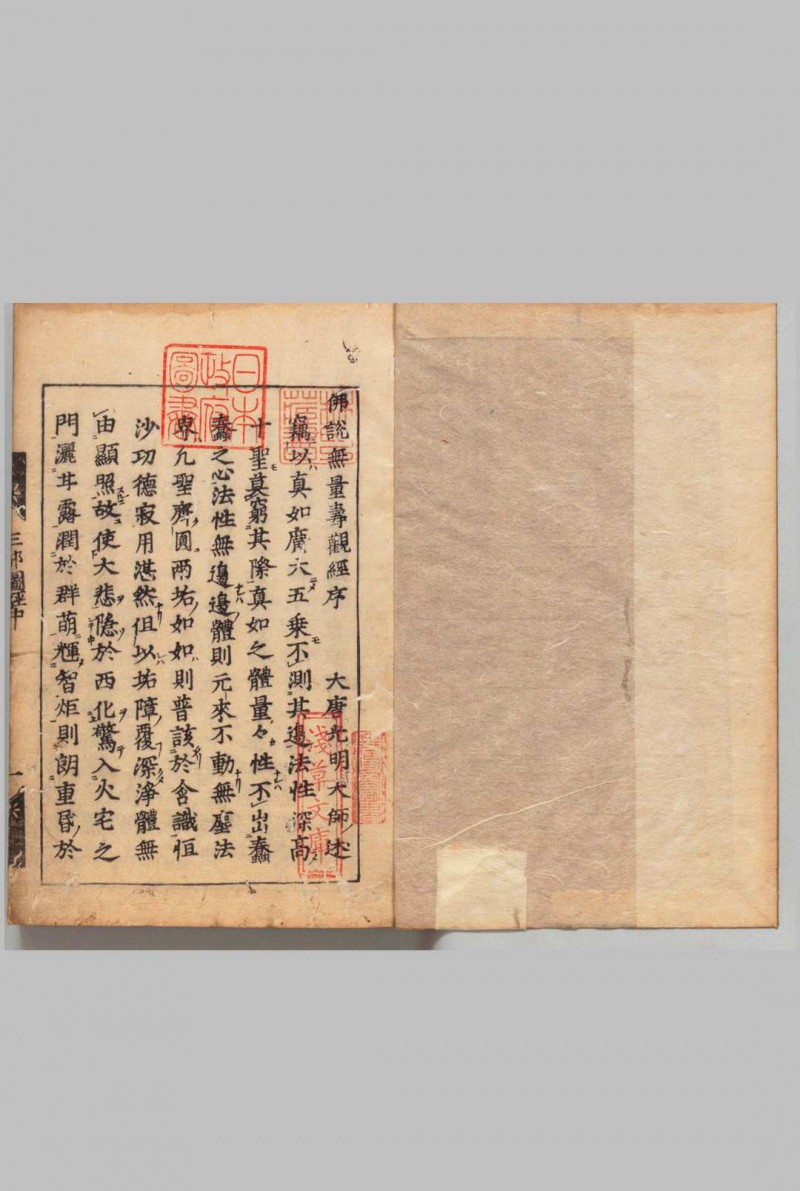 佛說無量壽觀經序　大唐光明大師述
竊以真如廣大五乘不測其邊法性深高
十聖莫窮其際真如之體量々性不出蠢
蠢之心法性無邊邊體則元來不動無塵法
界凡聖齊圓兩垢如如則普該於含識恒
沙功德寂用湛然但以垢障覆深淨體無
由顯照故使大悲隱於西化驚入火宅之
門灑甘露潤於群萌輝智炬則朗重昏於
三部圖經中
日本
政府
圖書
淺草文庫